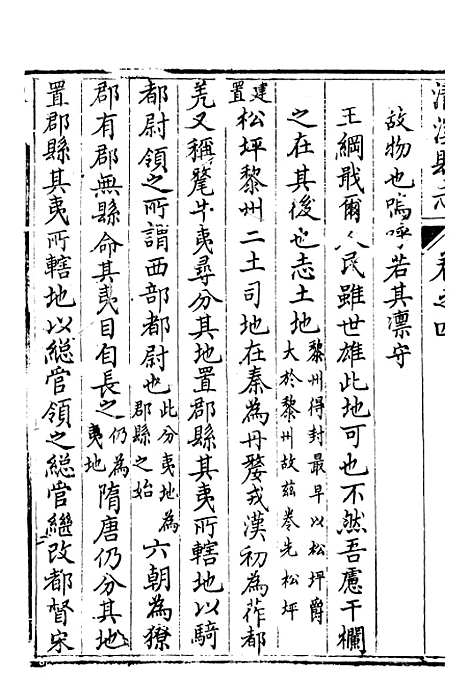 清溪縣志 卷之四
故物也嗚呼若其凛守
王綱戢爾人民雖世雄此地可也不然吾慮干欄
之在其後也志土地 黎州得封最早以松坪爵
大於黎州故茲卷先松坪
建置 松坪黎州二土司地在秦為丹䣕戎漢初為莋都
羌又稱氂牛夷尋分其地置郡縣其夷所轄地以騎
都尉領之所謂西部都尉也 此分夷地為
郡縣之始 六朝為獠
郡有郡無縣命其夷目自長之 仍為
夷地 隋唐仍分其地
置郡縣其夷所轄地以総官領之総官繼改都督宋